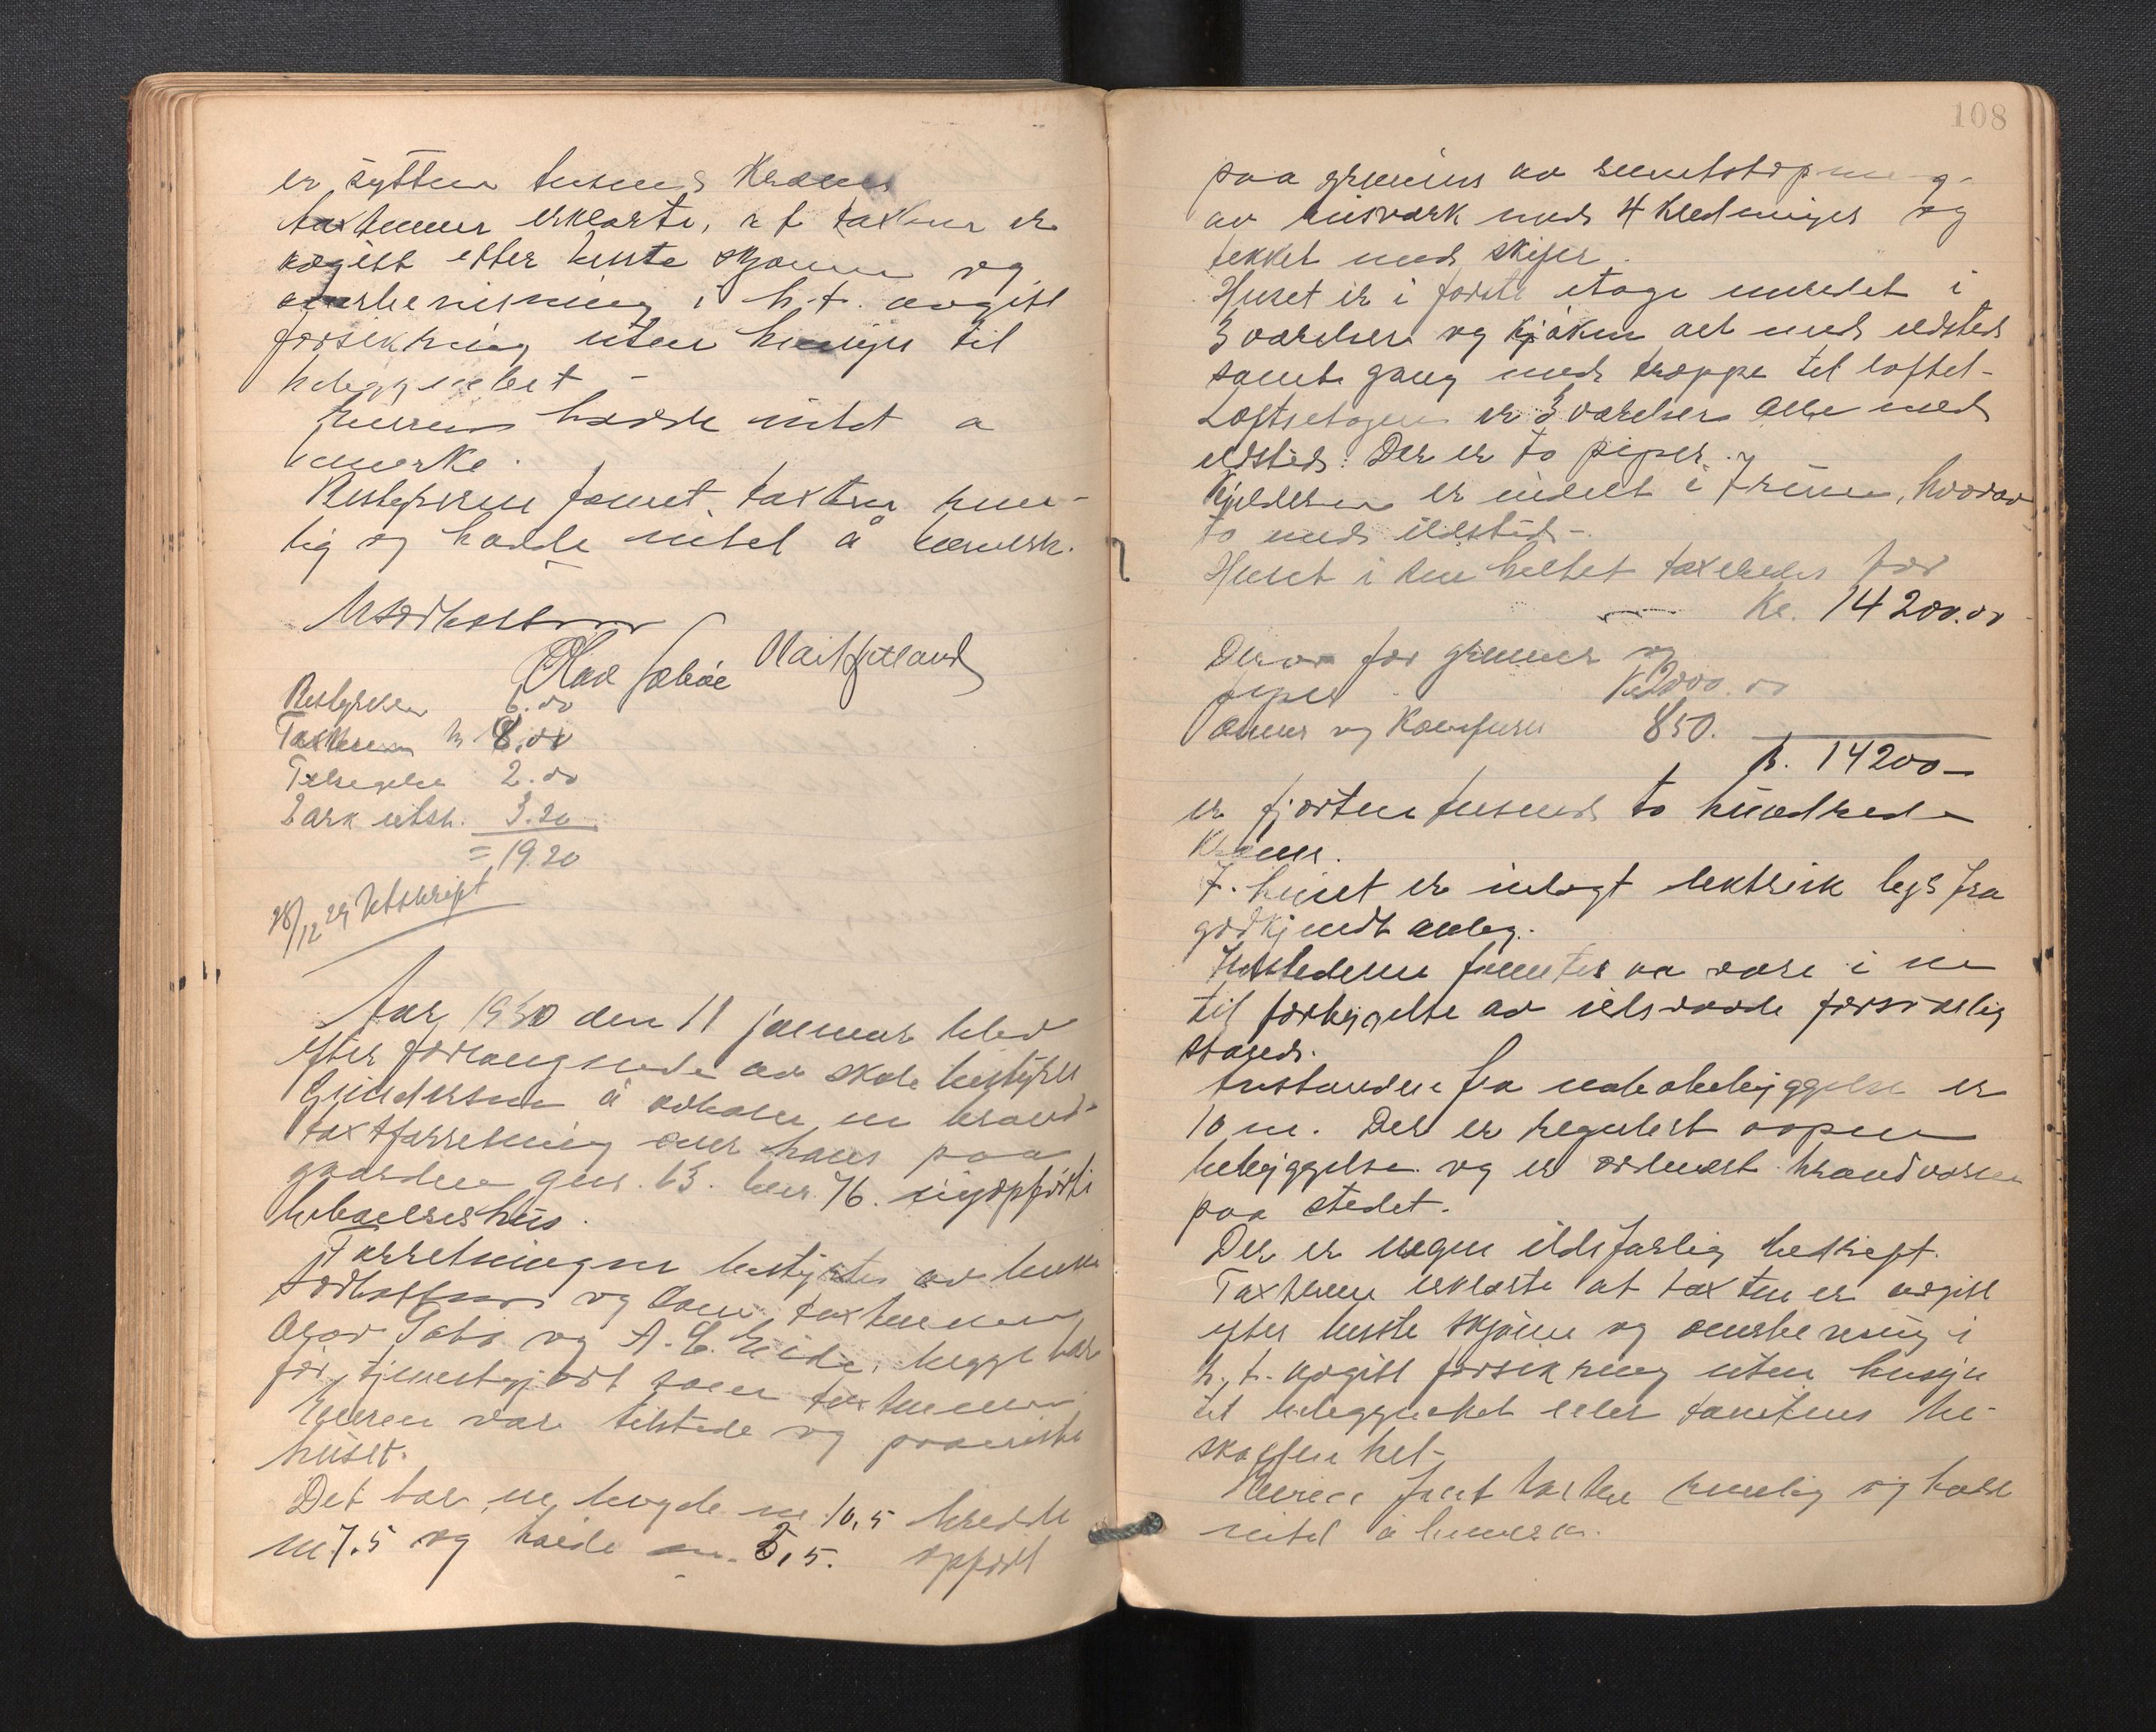 er sytten tusend Kroner
taxtmenn erklærte, at taxten er
avgitt efter beste skjønn og
overbevisning i h. t. avgitt
forsikring uten hensyn til
beleggenhet -
Eieren hadde intet a
bemerke.
Bestyreren fannt taxten rime-
lig og hadde intet å bemerk.
Olai Hetland
Bestyreren 6.00
Taxtmenn kr 8.00
Tilsigelse 2.00
2 ark utsk. 3.20
= 19.20
28/12 29 Utskrift
Aar 1930 den 11 januar blev
efter forlangende av skolebestyrer
Gundersen å avholde en brand-
taxtforretning over hans paa
gaarden gnr. 13. bnr. 76. nyopførte
beboelseshus.
Forretningen bestyrtes av lens
og som taxtmenn
og A. C. Eide, begge har
før tjenestgjort som taxtmenn
Eieren var tilstede og paaviste
huset.
Det har en lengde m 10,5 bredde
m 7.5 og høide m. 5,5. opført
108
paa grunnur av sementstøpning
av bisverk med 4 kledninger og
tekket med skifer.
Huset er i første etage innredet i
3 værelser og kjøken alt med ildsted
samt gang med trappe til loftet -
Loftsetagen er 3 værelser alle med
ildsted. Der er to piper.
Kjelderen er indelt i 7 rum, hvorav
to med ildsted -
Huset i sin helhet taxeredes for
Kr. 14200.00
Derav for grunnur og
piper Kr 2000.00
ovner og Komfurer 850.
kr. 14200 -
er fjorten tusend to hundrede
Kroner.
I huset er inlagt lektrisk lys fra
godkjendt anleg.
Ildstederne fantes aa være i en
til forbyggelse av ildsvaade forsvarlig
stand.
Avstanden fra nabobebyggelse er
10 m. Der er regulert aapen
bebyggelse og er ordnet brandvæsen
paa stedet.
Der er ingen ildsfarlig bedrift.
Taxtmenn erklærte at taxten er avgitt
efter beste skjønn og overbevisning i
h. t. avgitt forsikring uten hensyn
til beleggenhet eller tomtens be-
skaffenhet -
Eieren fant taxten rimelig og hadde
intet å bemerk.